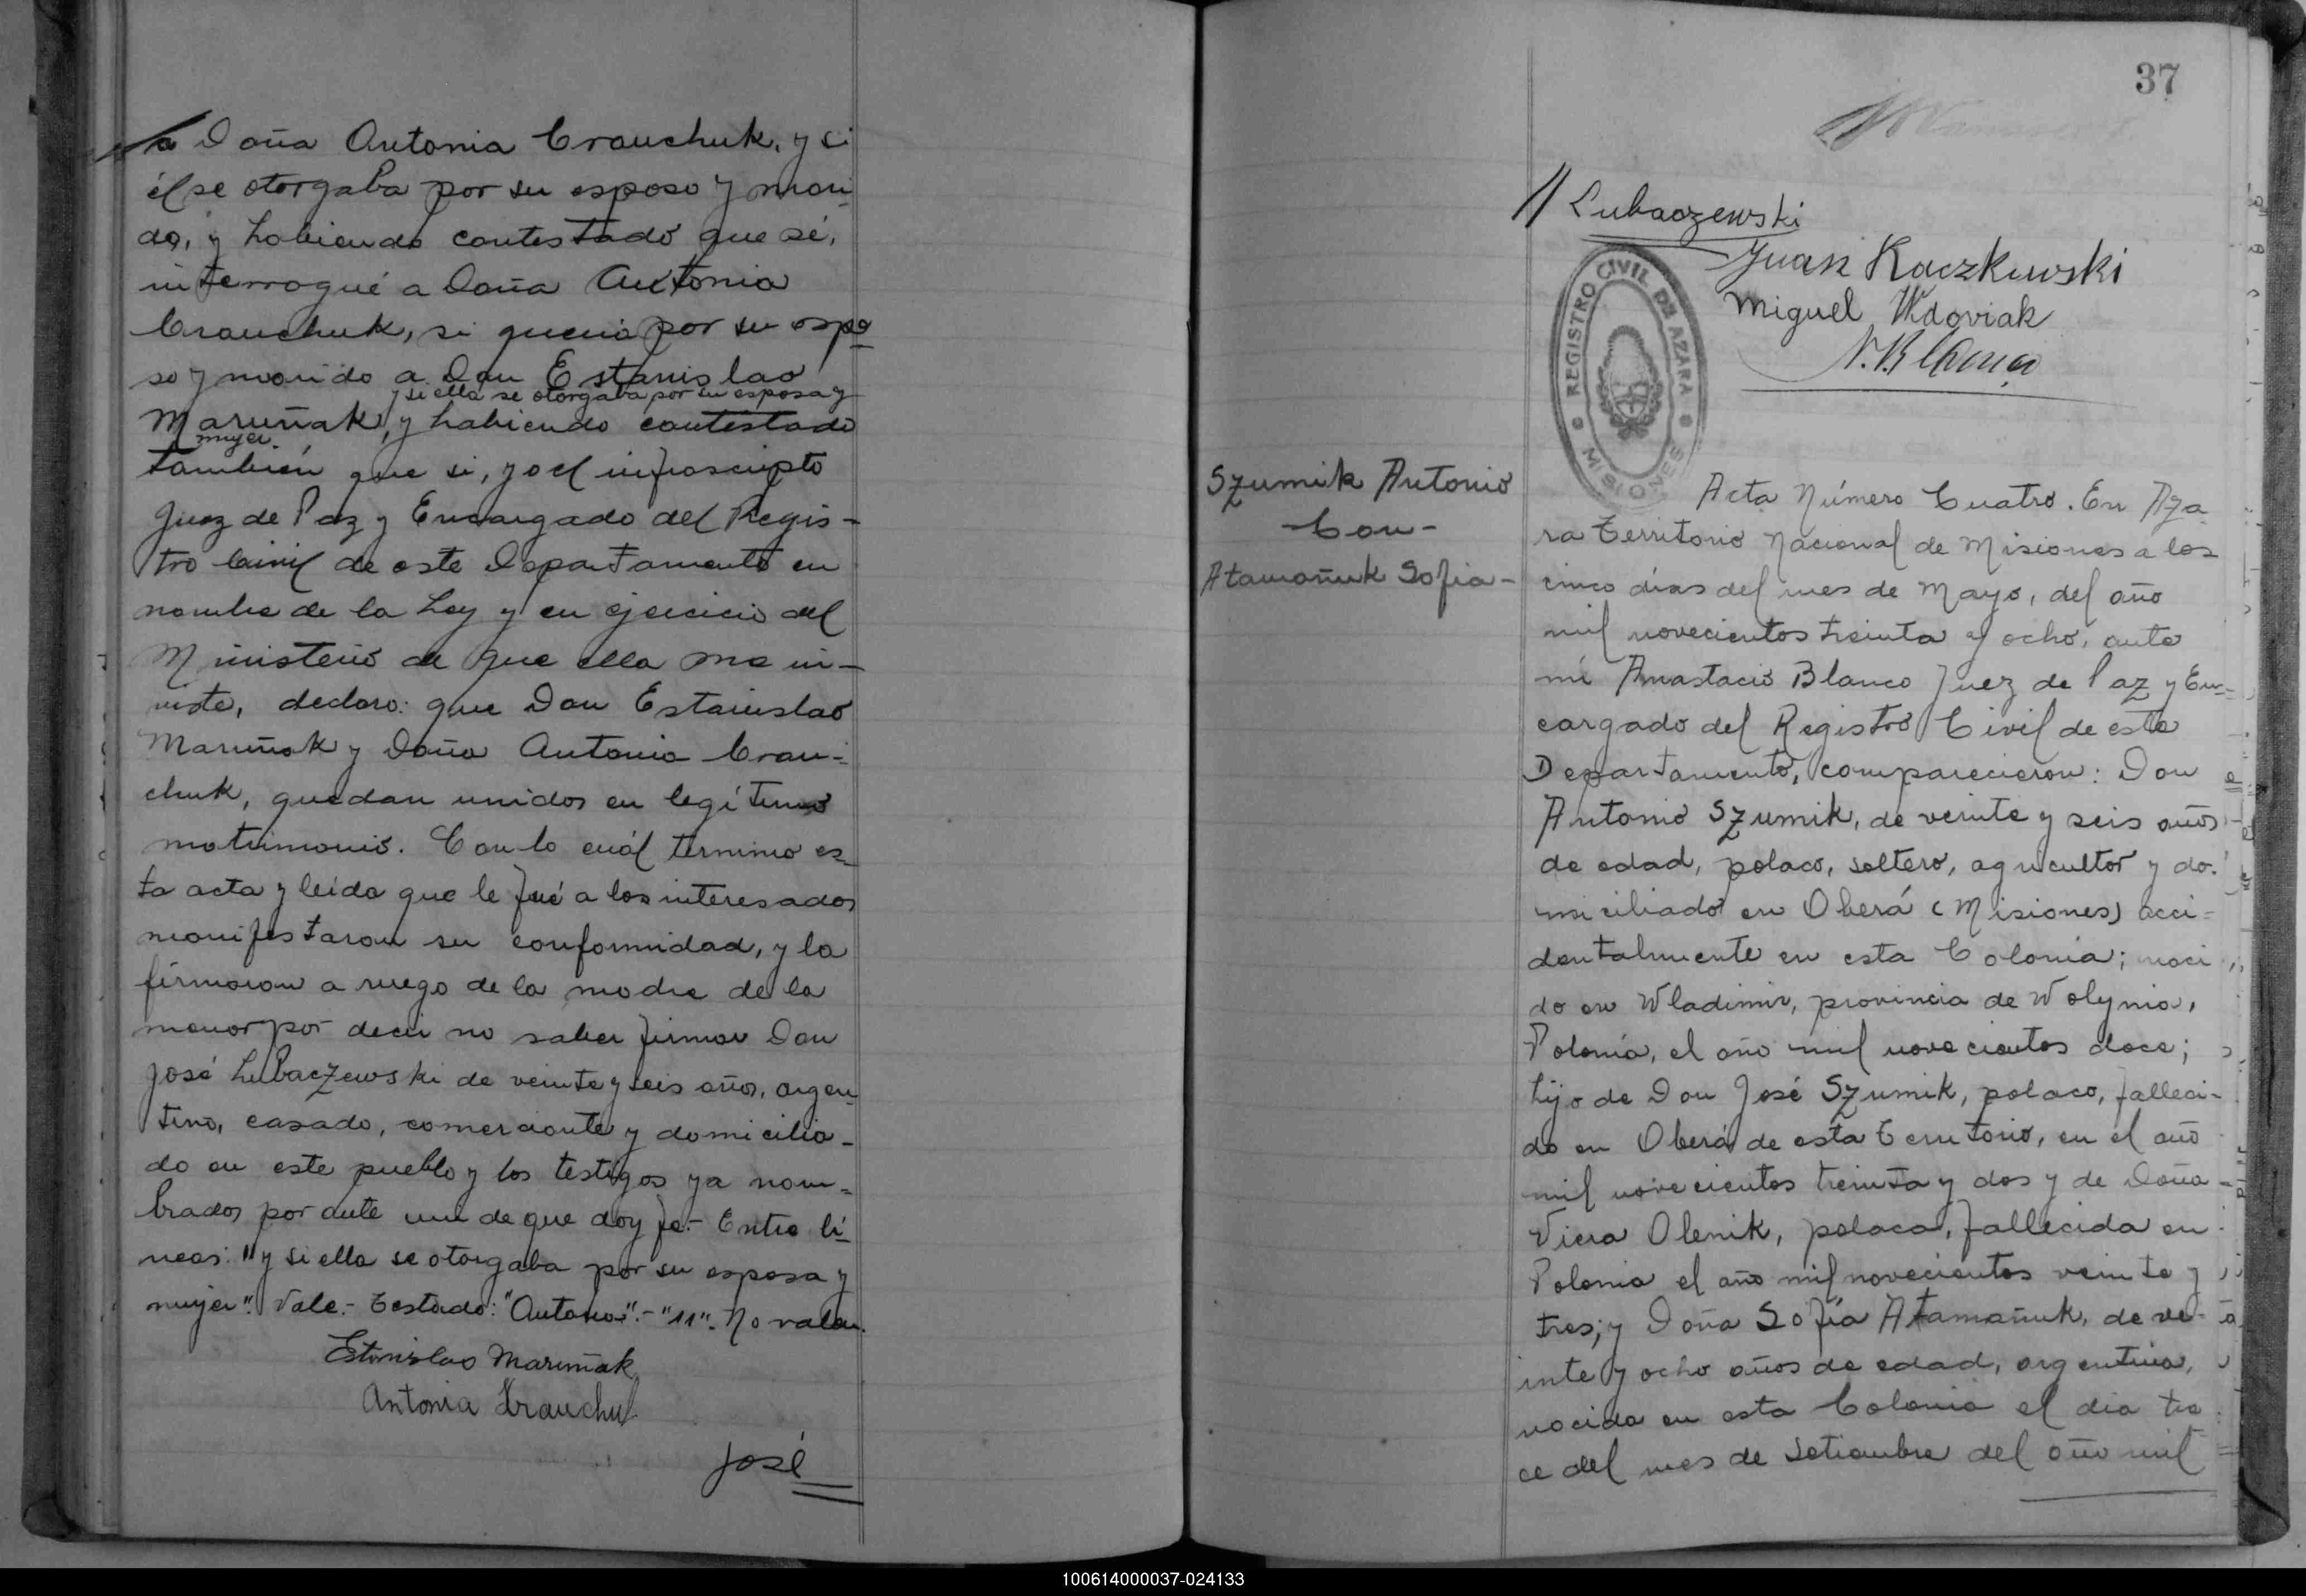 a Doña Antonia Crauchuk, y si
él se otorgaba por su esposo y mari-
do, y habiendo contestado que sí,
interrogué a Doña Antonia
Crauchuk, si queria por su espo
so y marido a Don Estanislao
y si ella se otorgaba por su esposa y
Maruñak, y habiendo contestado
mujer.
también que si, yo el infrascripto
Juez de Paz y Encargado del Regis-
tro Civil de este Departamento en
nombre de la Ley y en ejercicio del
Ministerio de que ella me in-
viste, declaro: que Don Estanislao
Maruñak y Doña Antonia Crau-
chuk, quedan unidos en legítimo
matrimonio. Con lo cuál termino es-
ta acta y leída que le fué a los interesados
manifestaron su conformidad, y la
firmaron a ruego de la madre de la
menor por decir no saber firmar Don
José Lubaczewski de veinte y seis años, argen
tino, casado, comerciante y domicilia-
do en este pueblo y los testigos ya nom-
brados por ante mi de que doy fe.- Entre lí-
neas: "y si ella se otorgaba por su esposa y
mujer". Vale.- Testado: - "11". No valen.
Estanislao Maruñak
Antonia Krauchuk
José
37
// Lubaczewski
Juan Kaczkuwski
Miguel Wdoviak
REGISTRO CIVIL DE AZARA
MISIONES
Szumik Antonio
Con-
Atamañuk Sofia-
Acta Número Cuatro. En Aza
ra Territorio Nacional de Misiones a los
cinco días del mes de Mayo, del año
mil novecientos treinta y ocho, ante
mí Anastacio Blanco Juez de Paz y En-
cargado del Registro Civil de este
Departamento, comparecieron: Don
Antonio Szumik, de veinte y seis años
de edad, polaco, soltero, agricultor y do-
miciliado en Oberá (Misiones) acci-
dentalmente en esta Colonia; naci
do en Wladimir, provincia de Wolynia,
Polonia, el año mil novecientos doce;
hijo de Don José Szumik, polaco, falleci-
do en Oberá de esta Territorio, en el año
mil novecientos treinta y dos y de Doña
Viera Olenik, polaca, fallecida en
Polonia el año mil novecientos veinte y
tres; y Doña Sofía Atamañuk, de ve-
inte y ocho años de edad, argentina,
nacida en esta Colonia el dia tre
ce del mes de Setiembre del año mil
100614000037-024133